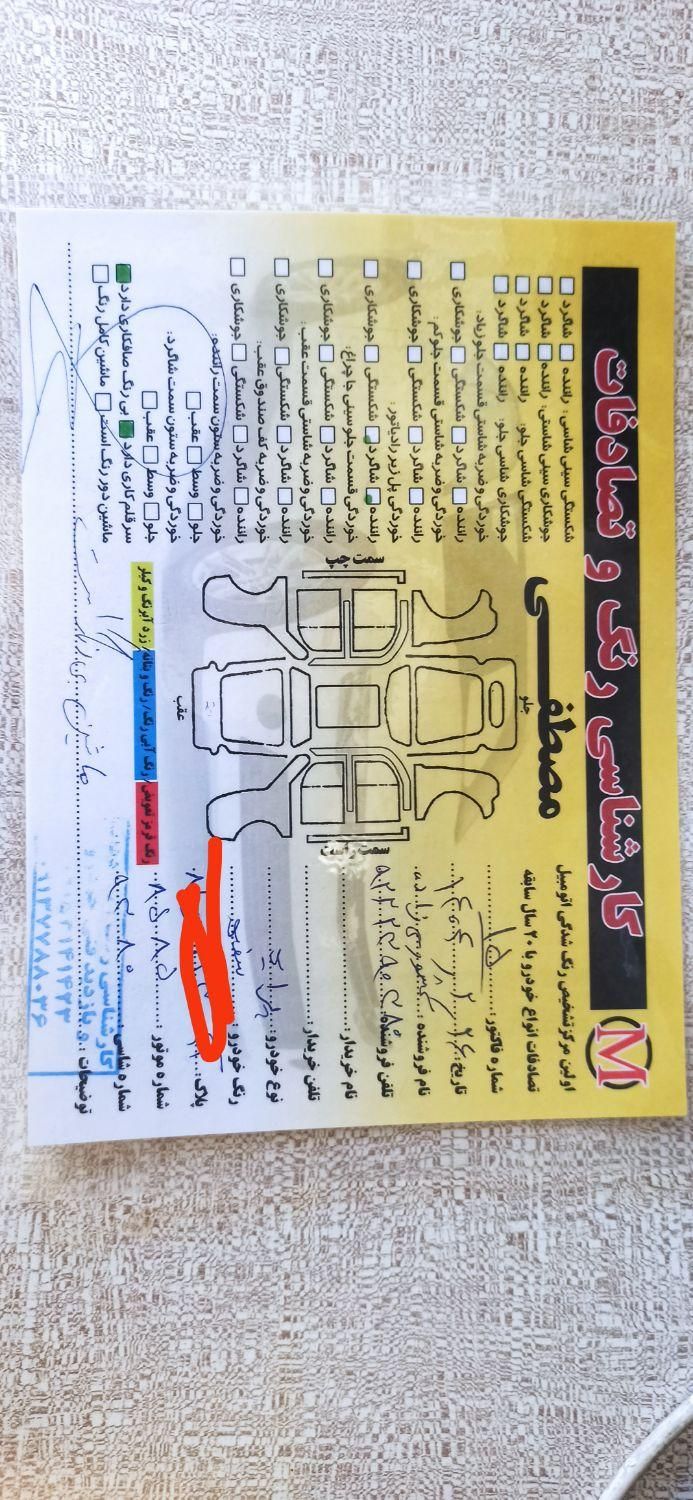 کارشناسی رنگ و تصادفات
M
مصطفی
اولین مرکز تشخیص رنگ شدگی اتومبیل
تصادفات انواع خودرو با ۲۰ سال سابقه
شماره فاکتور:
تاریخ:
نام فروشنده:
تلفن فروشنده:
نام خریدار:
تلفن خریدار:
نوع خودرو: پراید
رنگ خودرو: سفید
پلاک:
شماره موتور:
شماره شاسی:
توضیحات:
جلو
سمت چپ
سمت راست
عقب
شکستگی سینی شاسی: راننده شاگرد
جوشکاری سینی شاسی: راننده شاگرد
شکستگی شاسی جلو: راننده شاگرد
جوشکاری شاسی جلو: راننده شاگرد
خوردگی و ضربه شاستی قسمت جلو زیاد:
راننده شاگرد شکستگی جوشکاری
خوردگی و ضربه شاستی قسمت جلو کم:
راننده شاگرد شکستگی جوشکاری
خوردگی پل زیر رادیاتور:
راننده شاگرد شکستگی جوشکاری
خوردگی قسمت جلو سینی جا چراغ:
راننده شاگرد شکستگی جوشکاری
خوردگی و ضربه شاستی قسمت عقب:
راننده شاگرد شکستگی جوشکاری
خوردگی و ضربه کف صندوق عقب:
راننده شاگرد شکستگی جوشکاری
خوردگی و ضربه ستون سمت راننده:
جلو وسط عقب
خوردگی و ضربه ستون سمت شاگرد:
جلو وسط عقب
سر قلم کاری دارد بی رنگ صافکاری دارد
ماشین دور رنگ است ماشین کامل رنگ
رنگ قرمز تعویض/ رنگ آبی رنگ/ رنگ و بتانه/ زرد آبرنگ و کیلر